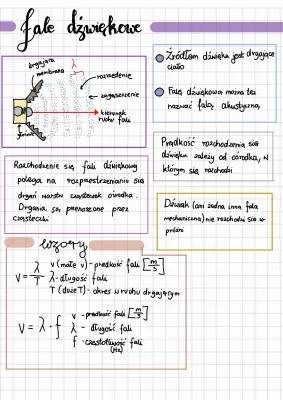 fale dźwiękowe
drgająca
membrana
λ
rozrzedzenie
zagęszczenie
kierunek
ruchu fali
Źródłem dźwięku jest drgające
ciało
Falę dźwiękową można też
nazwać falą akustyczną
Prędkość rozchodzenia się
dźwięku zależy od ośrodka, w
którym się rozchodzi
Rozchodzenie się fali dźwiękowej
polega na rozprzestrzenianiu się
drgań warstw cząsteczek ośrodka.
Drgania są przenoszone przez
cząsteczki
Dźwięk (ani żadna inna fala
mechaniczna) nie rozchodzi się w
próżni
wzory
v = λ / T
v (małe v) - prędkość fali [m/s]
λ - długość fali
T (duże T) - okres w ruchu drgającym
v = λ · f
v - prędkość fali [m/s]
λ - długość fali
f - częstotliwość fali
(Hz)